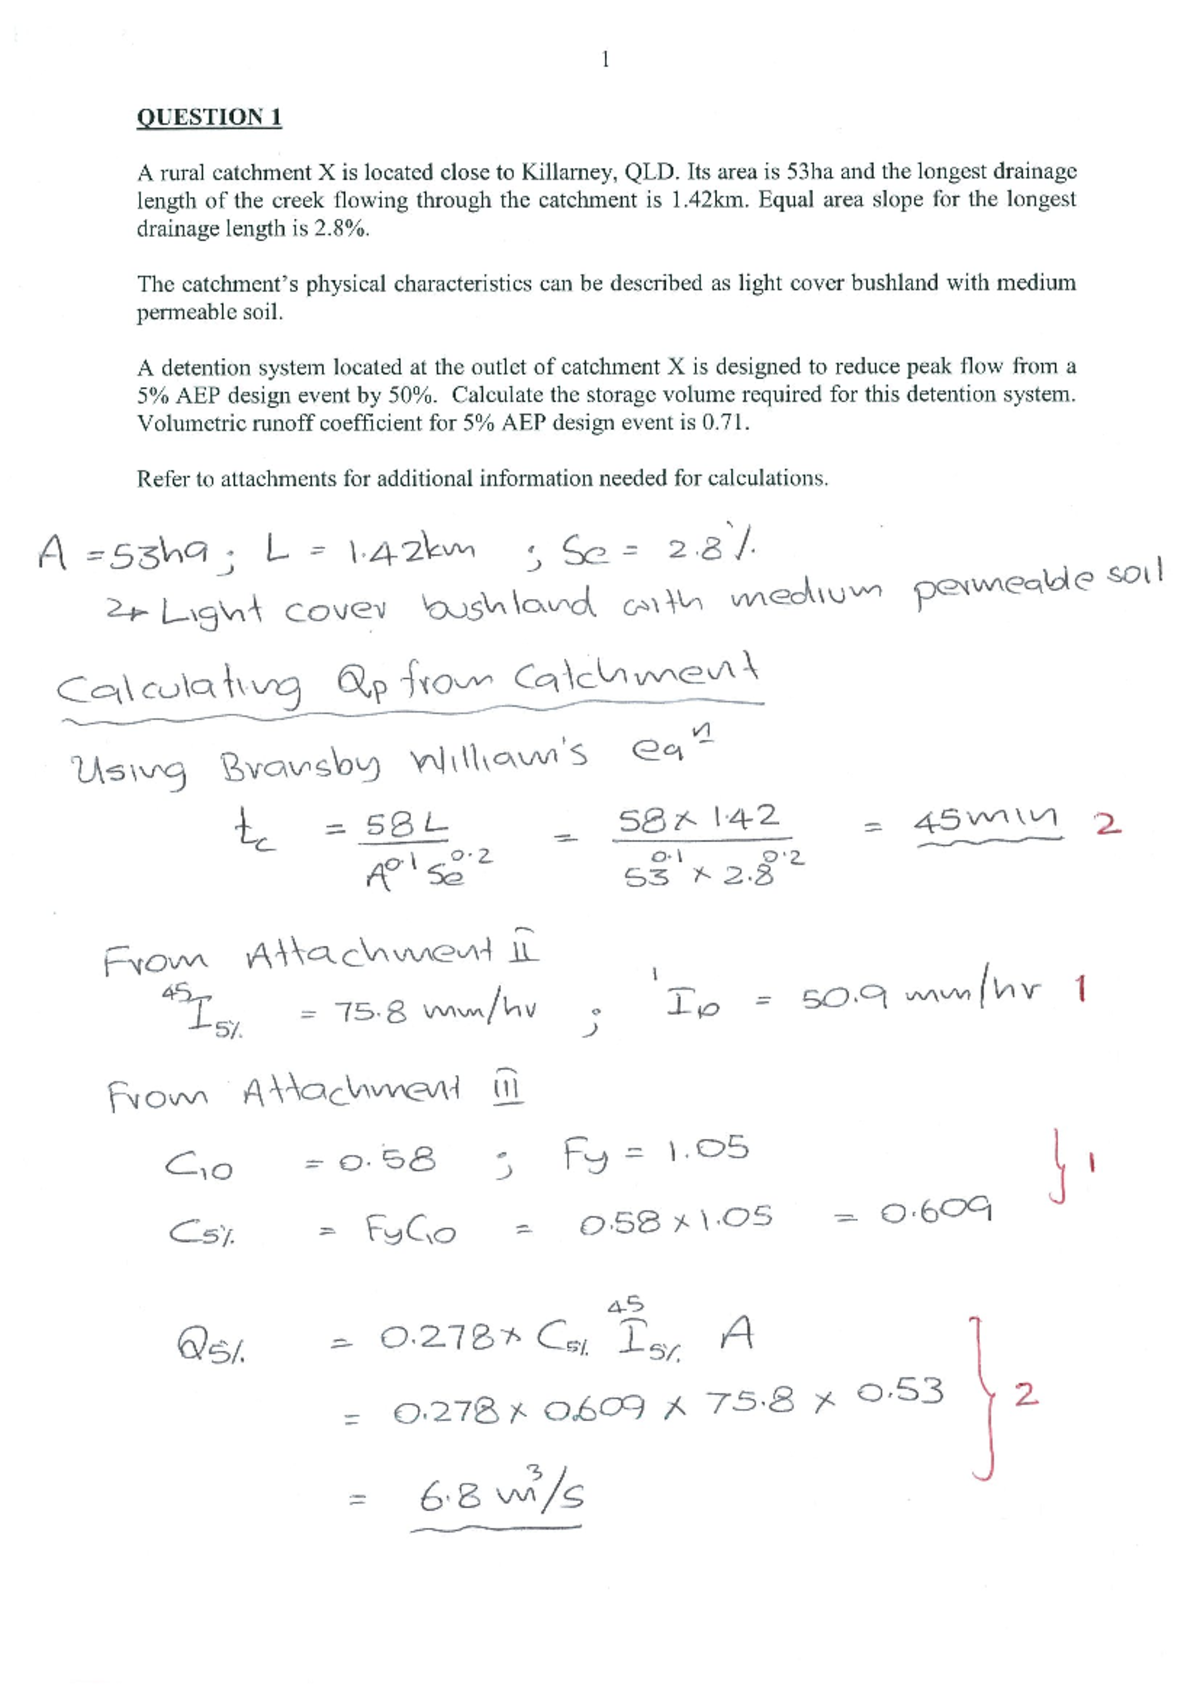 1
QUESTION 1
A rural catchment X is located close to Killarney, QLD. Its area is 53ha and the longest drainage
length of the creek flowing through the catchment is 1.42km. Equal area slope for the longest
drainage length is 2.8%.
The catchment's physical characteristics can be described as light cover bushland with medium
permeable soil.
A detention system located at the outlet of catchment X is designed to reduce peak flow from a
5% AEP design event by 50%. Calculate the storage volume required for this detention system.
Volumetric runoff coefficient for 5% AEP design event is 0.71.
Refer to attachments for additional information needed for calculations.
A = 53ha ; L = 1.42km ; Se = 2.8%
Light cover bushland with medium permeable soil
Calculating Qp from Catchment
Using Bransby William's eqn
tc = 58L / A^0.1 Se^0.2 = 58 × 1.42 / 53^0.1 × 2.8^0.2 = 45min 2
From Attachment II
45I5% = 75.8 mm/hr ; 1I10 = 50.9 mm/hr 1
From Attachment III
C10 = 0.58 ; Fy = 1.05
} 1
C5% = FyC10 = 0.58 × 1.05 = 0.609
Q5% = 0.278 × C5% 45I5% A
= 0.278 × 0.609 × 75.8 × 0.53 } 2
= 6.8 m³/s